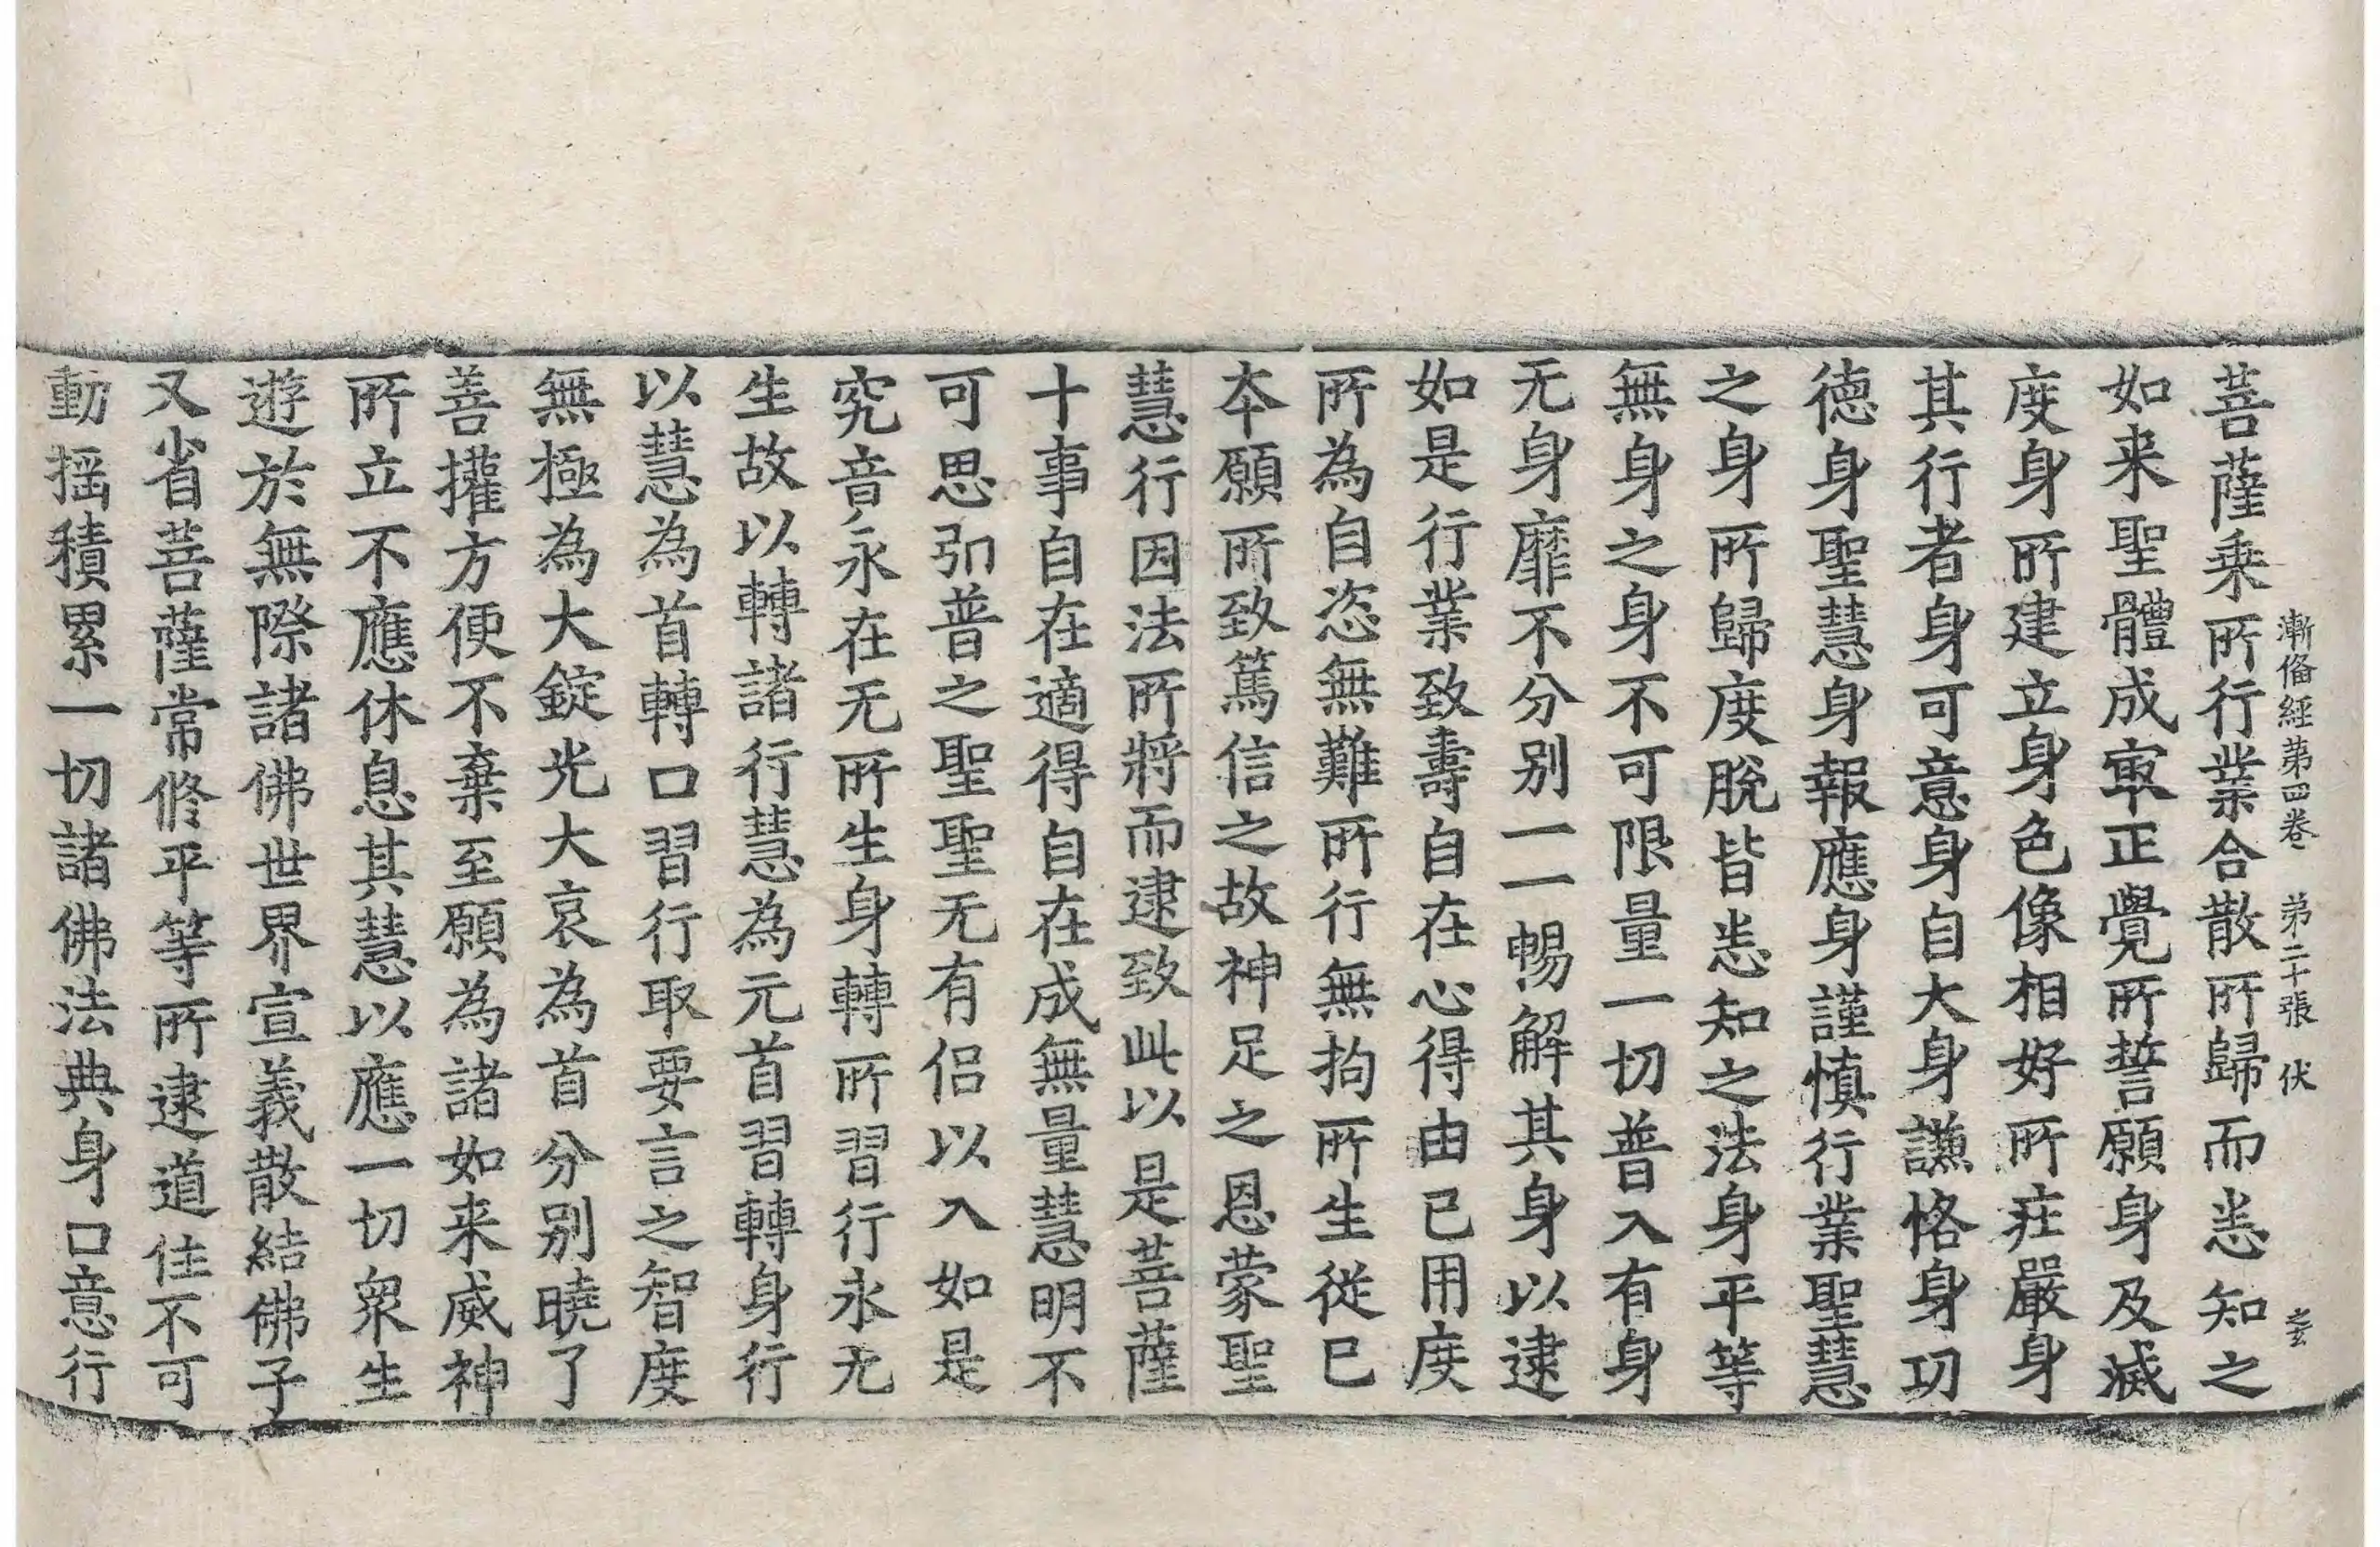 漸俻經第四卷　第二十張　伏　之玄
菩薩乗所行業合散所歸而悉知之
如来聖體成㝡正覺所誓願身及滅
度身所建立身色像相好所莊嚴身
其行者身可意身自大身謙恪身功
德身聖慧身報應身謹慎行業聖慧
之身所歸度脫皆悉知之法身平等
無身之身不可限量一切普入有身
无身靡不分别一一暢解其身以逮
如是行業致壽自在心得由已用度
所為自恣無難所行無拘所生從已
本願所致篤信之故神足之恩蒙聖
慧行因法所將而逮致此以是菩薩
十事自在適得自在成無量慧明不
可思引普之聖聖无有侣以入如是
究音永在无所生身轉所習行永无
生故以轉諸行慧為元首習轉身行
以慧為首轉口習行取要言之智度
無極為大錠光大哀為首分别曉了
善攉方便不棄至願為諸如来威神
所立不應休息其慧以應一切衆生
遊於無際諸佛世界宣義散結佛子
又省菩薩常修平等所逮道住不可
動揺積累一切諸佛法典身口意行